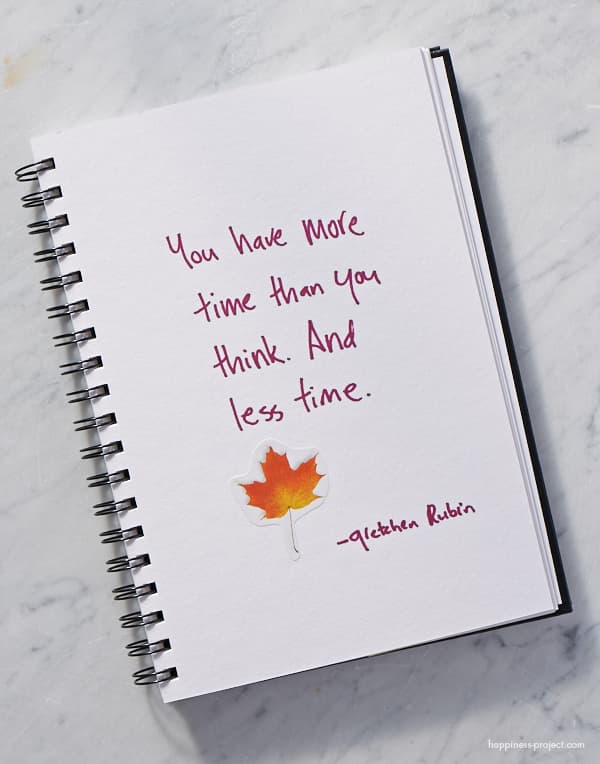 You have more
time than you
think. And
less time.
-Gretchen Rubin
happiness-project.com